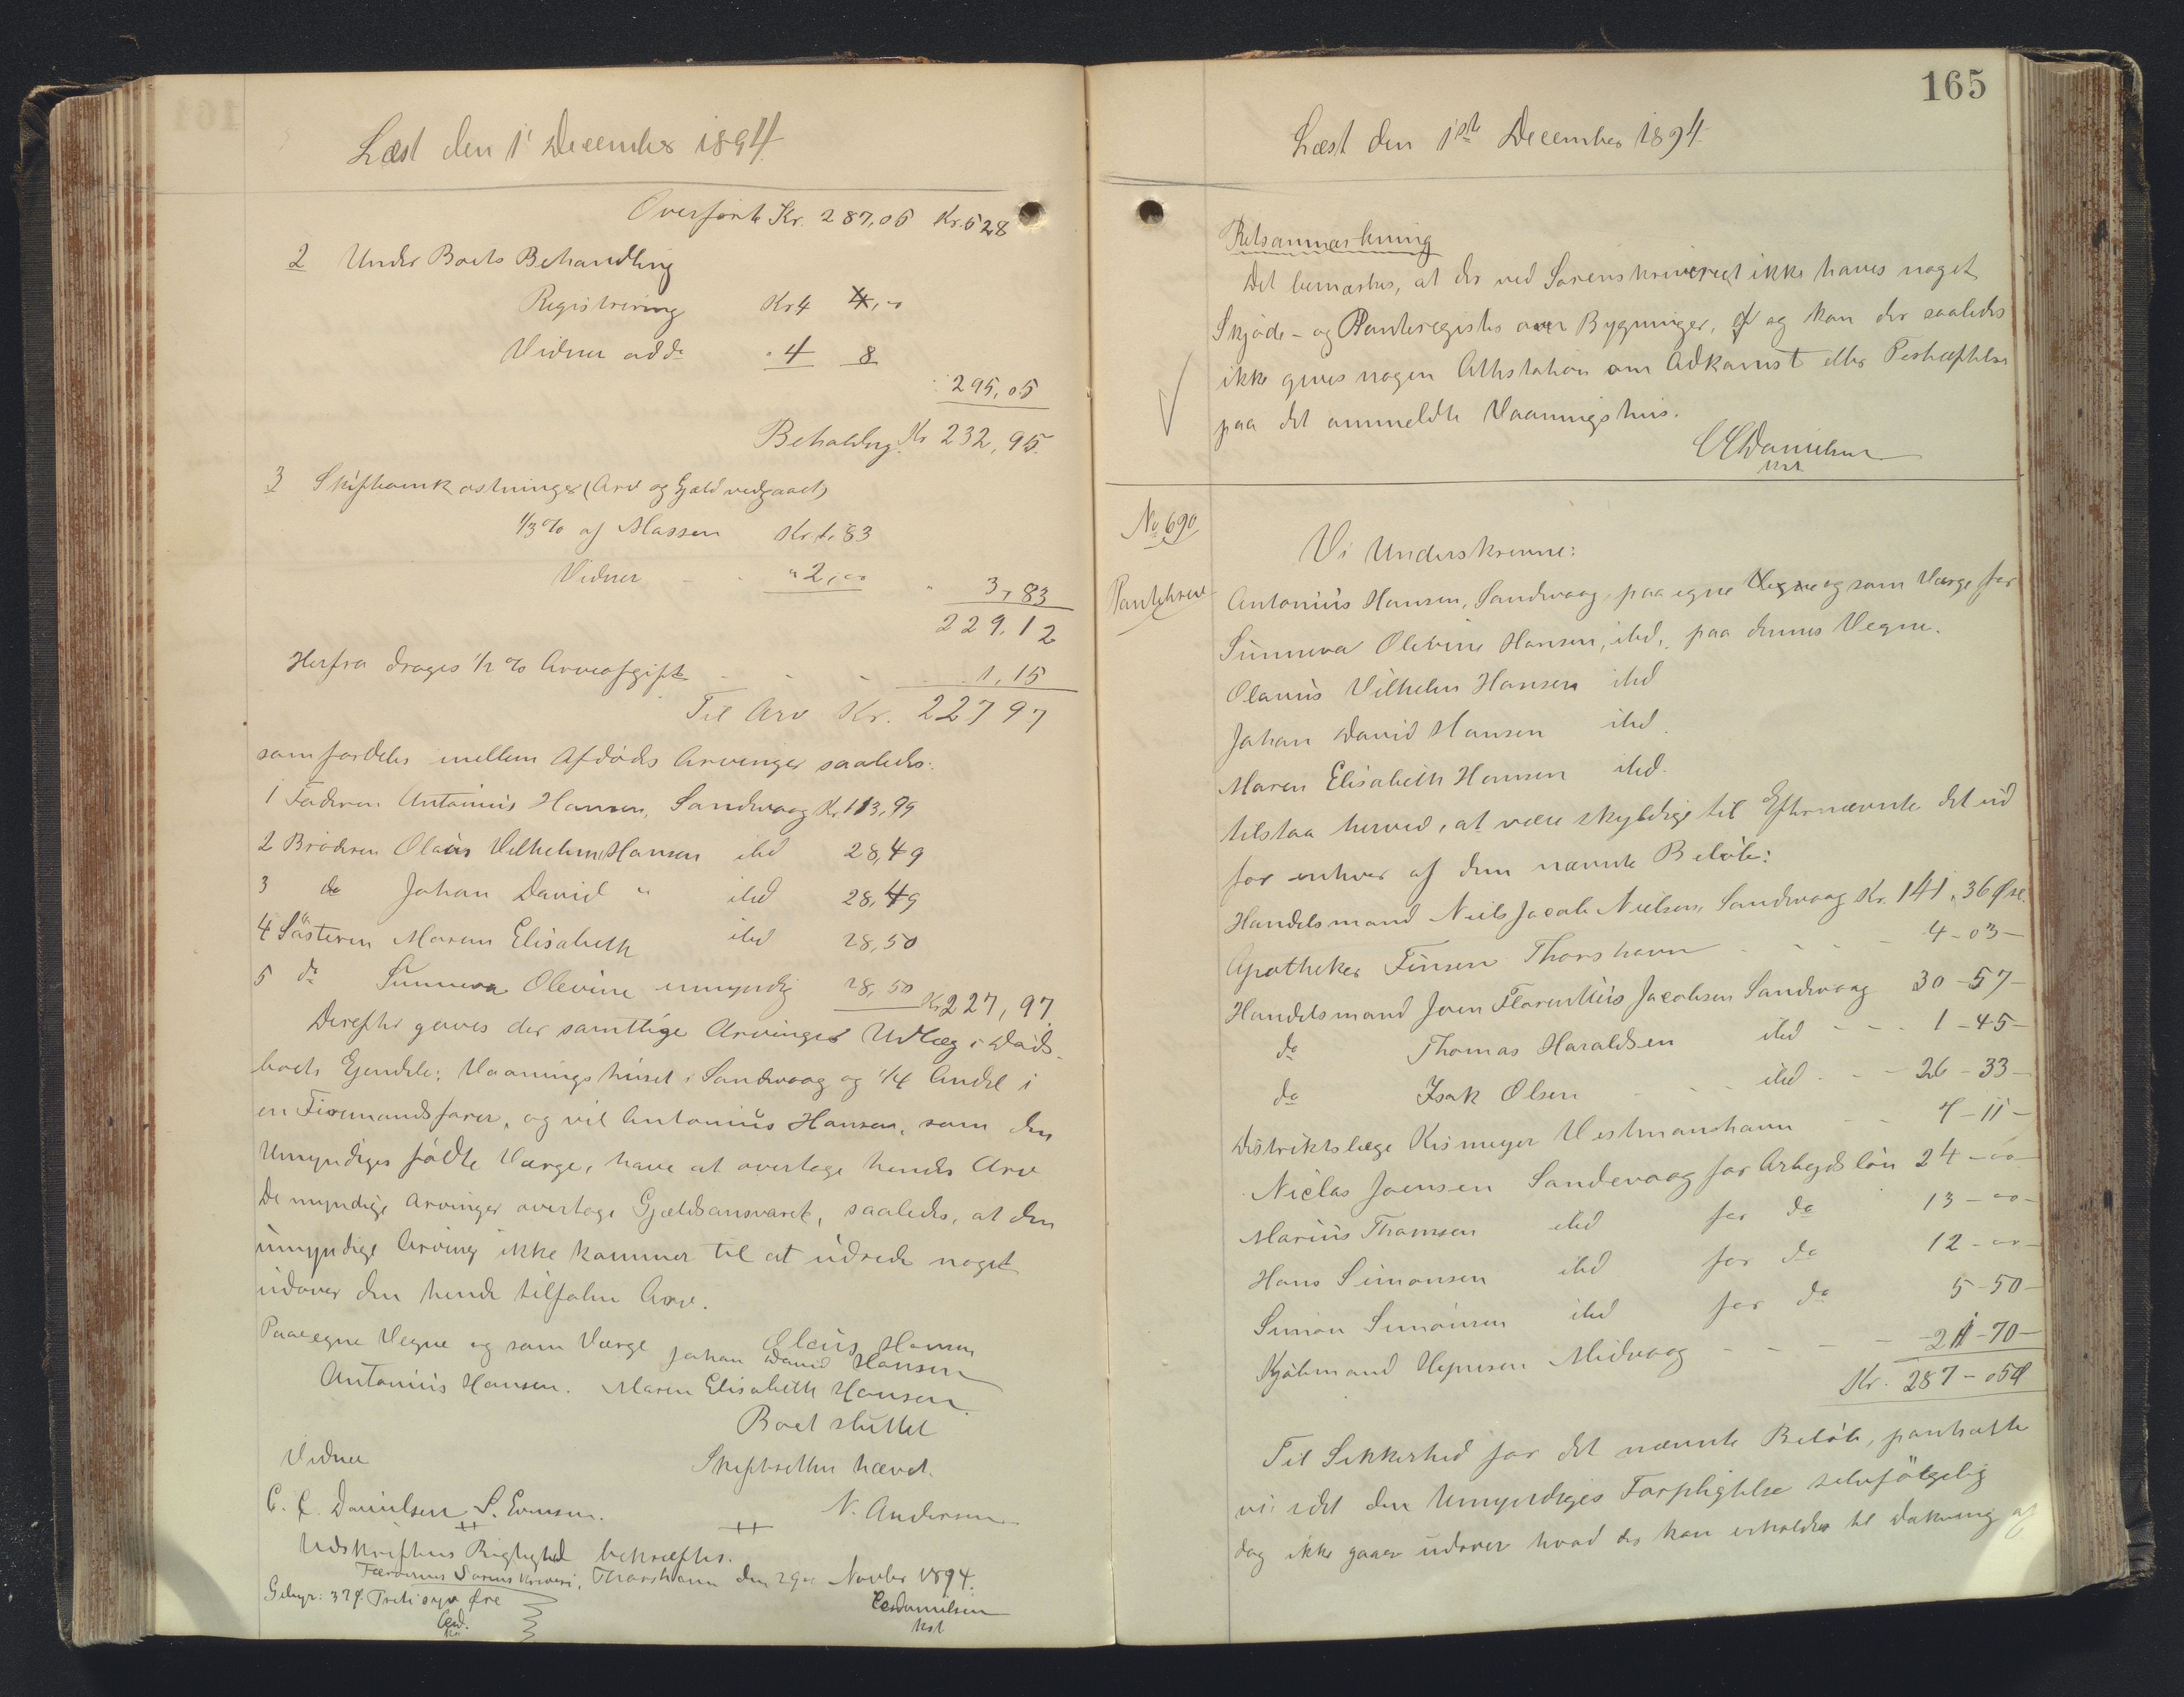 Læst den 1' December 1894
Overført Kr. 287,05 Kr. 528
2 Under Boets Behandling
Registrering Kr 4
Vidner ad do " 4 8
295,05
Beholdng. Kr 232,95.
3 Skifteomkostninger (Arv og Gjæld vedgaaet)
1/3 % af Massen Kr. 1.83
Vidner - " 2,00 " 3,83
229.12
Herfra drages 1/2 % Arveafgift - - - 1,15
Til Arv Kr. 227 97
som fordeles mellem Afdødes Arvinger saaledes:
1 Faderen Antonius Hansen, Sandevaag Kr. 113,99
2 Broderen Olaus Vilhelm Hansen ibd 28,49
3 do Johan David " ibd 28,49
4 Søsteren Maren Elisabeth ibd 28,50
5 do Sunneva Olevine umyndig 28,50 Kr 227,97
Derefter gaves der samtlige Arvinger Udlæg i Døds-
boets Ejendele: Vaaningshuset i Sandevaag og 1/4 Andel i
en Firemandsfarer, og vil Antonius Hansen, som den
Umyndiges fødte Værge, have at overtage hendes Arv
De myndige Arvinger overtage Gjældsansvaret, saaledes, at den
umyndige Arving ikke kommer til at udrede noget
udover den hende tilfaldne Arv.
Paa egne Vegne og som Værge Olaus Hansen
Johan David Hansen
Antonius Hansen. Maren Elisabeth Hansen.
Boet sluttet
Vidner Skifteretten hævet.
C. C. Danielsen S. Evensen. N. Andersen
Udskriftens Rigtighed bekræftes.
Færøernes Sorenskriveri, Thorshavn den 29de Novbr 1894.
Gebyr: 37 f. Tretisyv Øre CCDanielsen
CCD. kst
kst
165
Læst den 1ste December 1894
Retsanmærkning
Det bemærkes, at der ved Sorenskriveriet ikke haves noget
Skjøde- og Panteregister over Bygninger, og kan der saaledes
ikke gives nogen Attestation om Adkomst eller Pexhæftelser
paa det anmeldte Vaaningshus.
CCDanielsen
kst
No 690
Pantebrev
Vi Underskrevne:
Antonius Hansen, Sandevaag, paa egne Vegne og som Værge for
Sunneva Olevine Hansen, ibd, paa dennes Vegne.
Olanus Vilhelm Hansen ibd
Johan David Hansen ibd.
Maren Elisabeth Hansen ibd.
tilstaa herved, at være skyldige til Efternævnte det ud
for enhver af dem nævnte Beløb:
Handelsmand Niels Jacob Nielsen, Sandevaag Kr. 141,36 Øre.
Apotheker Finsen Thorshavn - - - - 4-03-
Handelsmand Joen Florentius Jacobsen Sandevaag 30-57-
do Thomas Haraldsen ibd - - - 1-45-
do Isak Olsen - - ibd - - - 26-33-
Distriktslæge Kismeyer Vestmanhavn - - 7-11-
Niclas Joensen Sandevaag for Arbejdsløn 24-00-
Marius Thomsen ibd for do 13-00-
Hans Simonsen ibd for do 12-00-
Simon Simonsen ibd for do 5-50-
Kjøbmand Heinesen Midvaag - - - - 21-70-
Kr. 287-05
Til Sikkerhed for det nævnte Beløb, pantsætte
vi idet den Umyndiges Forpligtelse selvfølgelig
dog ikke gaaer udover hvad der kan erholdes til Dækning af